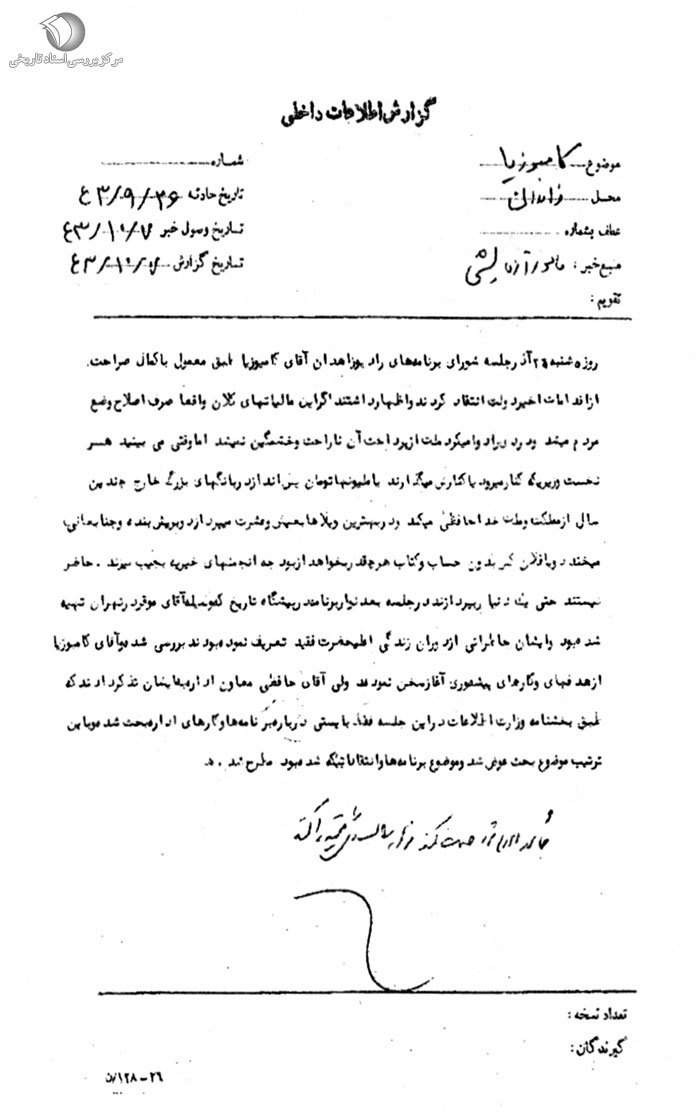 مرکز بررسی اسناد تاریخی
گزارش اطلاعات داخلی
موضوع کامبوزیا
شماره
محل زاهدان
تاریخ حادثه ۴۳/۹/۲۶
عطف بشماره
تاریخ وصول خبر ۴۳/۱۰/۷
منبع خبر : مامور آزمایشی
تاریخ گزارش ۴۳/۱۰/۷
تقویم :
روز ۵شنبه ۲۶ آذر جلسه شورای برنامه‌های رادیو زاهدان آقای کامبوزیا طبق معمول با کمال صراحت
از اقدامات اخیر دولت انتقاد کردند و اظهار داشتند اگر این مالیاتهای کلان واقعا صرف اصلاح وضع
مردم میشد دردی را دوا میکرد ملت از پرداخت آن ناراحت و خشمگین نمیشد اما وقتی می بینید هر
نخست وزیریکه کنار میرود یا کنارش میگذارند با ملیونها تومان پس انداز در بانگهای بزرگ خارج چندین
سال از مملکت وطنت خداحافظی میکند و در بهترین ویلاها بعیش و عشرت میپردازد و بریش بنده و جنابعالی
میخندد و یا فلان کس بدون حساب و کتاب هر چقدر بخواهد از بودجه انجمنهای خیریه بجیب میزند . حاضر
نیستند حتی یک دنیا بپردازند در جلسه بعد نوار برنامه در پیشگاه تاریخ که بوسیله آقای موقر در تهران تهیه
شده بود و ایشان خاطراتی از دوران زندگی اعلیحضرت فقید تعریف نموده بودند بررسی شد و آقای کامبوزیا
از هدفهای و کارهای پیشه‌وری آغاز سخن نمودند ولی آقای حافظی معاون اداره بایشان تذکر دادند که
طبق بخشنامه وزارت اطلاعات در این جلسه فقط بایستی درباره برنامه‌ها و کارهای اداره بحث شود و باین
ترتیب موضوع بحث عوض شد و موضوع برنامه‌ها و انتقاداتیکه شده بود مطرح شد . ه
تعداد نسخه :
گیرندگان :
۲۶-۱۲۸/ن